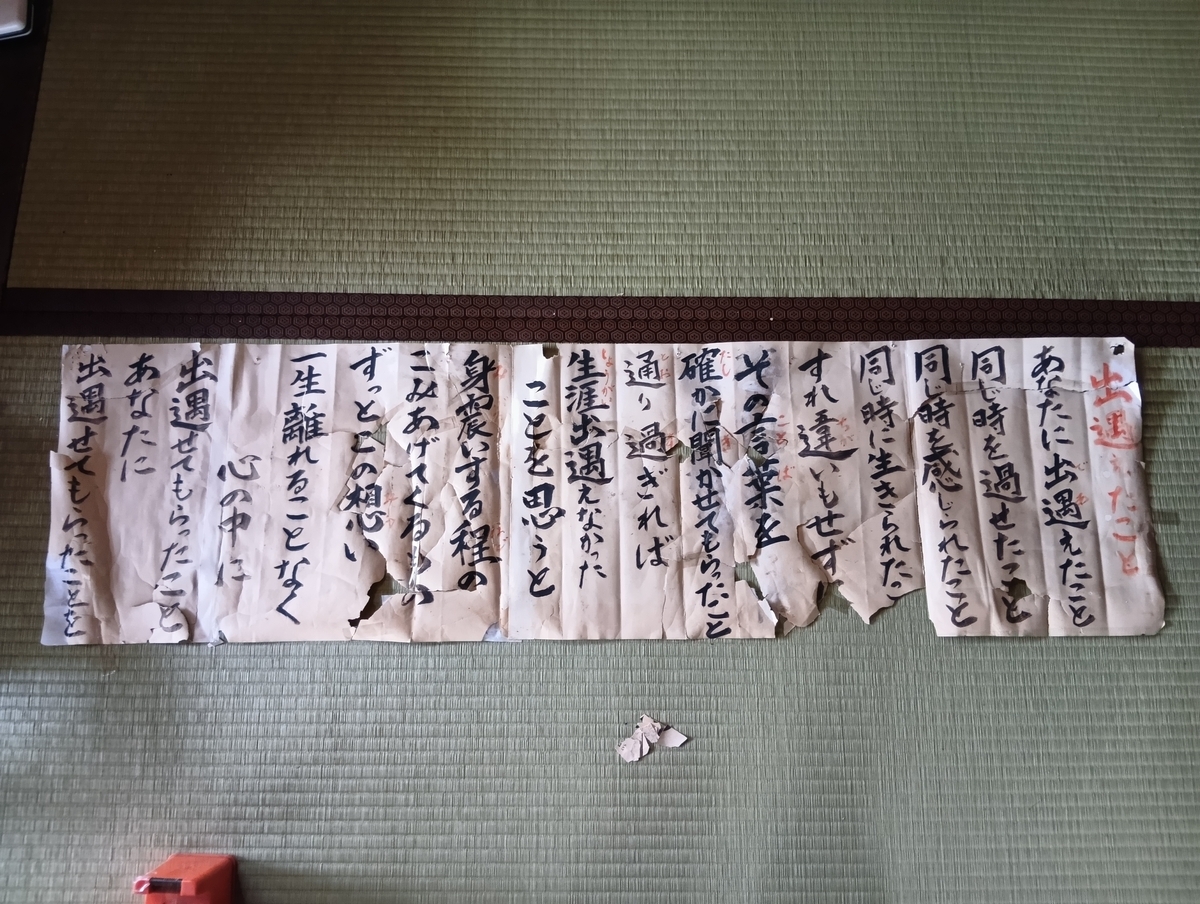 出遇えたこと
あなたに出遇えたこと
同じ時を過せたこと
同じ時を感じられたこと
同じ時に生きられたこ
すれ違いもせず
その言葉を
確かに聞かせてもらったこと
通り過ぎれば
生涯出遇えなかった
ことを思うと
身震いする程の
こみあげてくるものの
ずっとこの想い
一生離れることなく
心の中に
出遇せてもらったこと
あなたに
出遇せてもらったことを